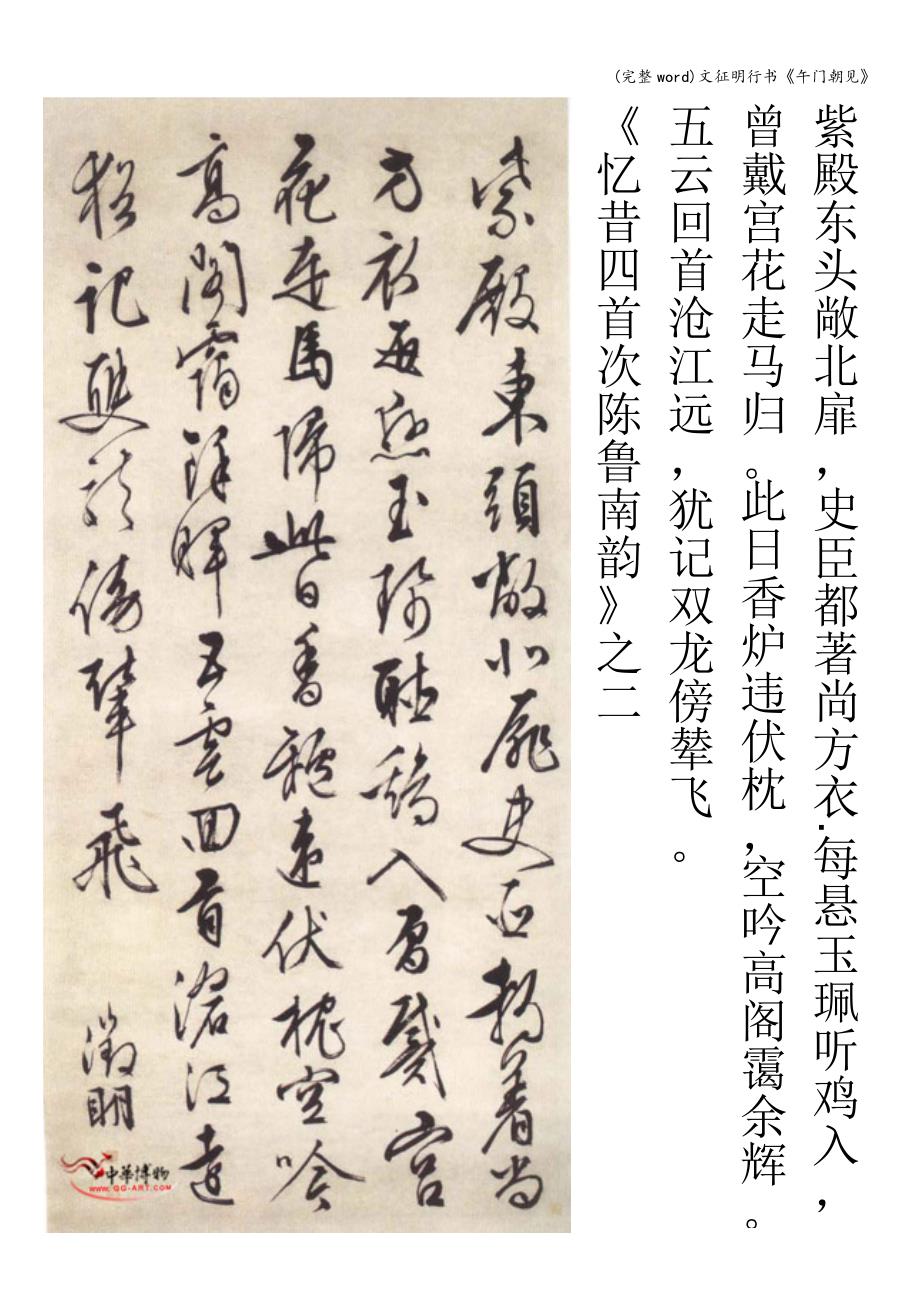 (完整word)文征明行书《午门朝见》
紫殿东头敞北扉,史臣都著尚方衣.每悬玉珮听鸡入,
曾戴宫花走马归。此日香炉违伏枕,空吟高阁霭余辉。
五云回首沧江远,犹记双龙傍辇飞。
《忆昔四首次陈鲁南韵》之二
紫殿東頭敞北扉史臣都着尚
方衣每懸玉珮聽鷄入曾戴宮
花走馬歸此日香爐違伏枕空吟
高閣靄餘暉五雲回首滄江遠
猶記雙龍傍輦飛
徵明
中華博物
www.GG-ART.COM